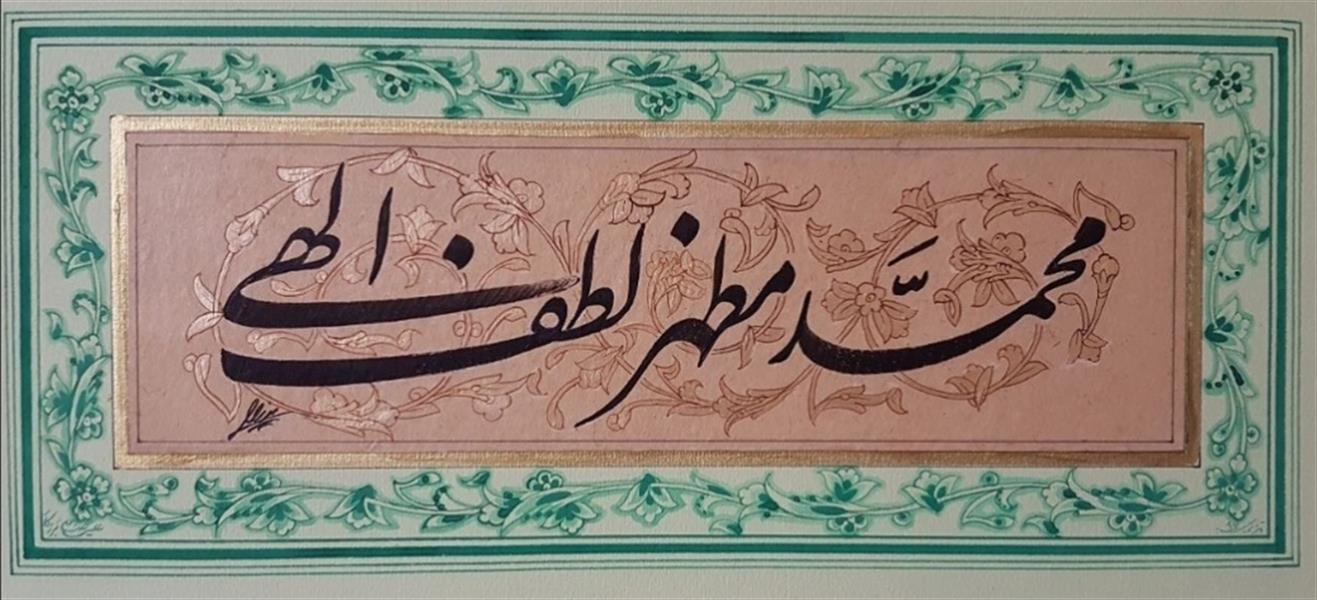 محمّد مظهر لطف الهی